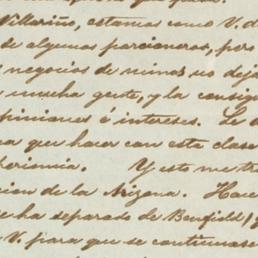 Villariño, estamos como V. d
de algunos parcioneros, por
negocios de minas no deja
mucha gente, y la consig
opiniones é intereses. Se
ca que hacer con esta clase
Y esto me tr
cion de la Arizona. Hace
se ha separado de Benfield, y
V. para que se continuase